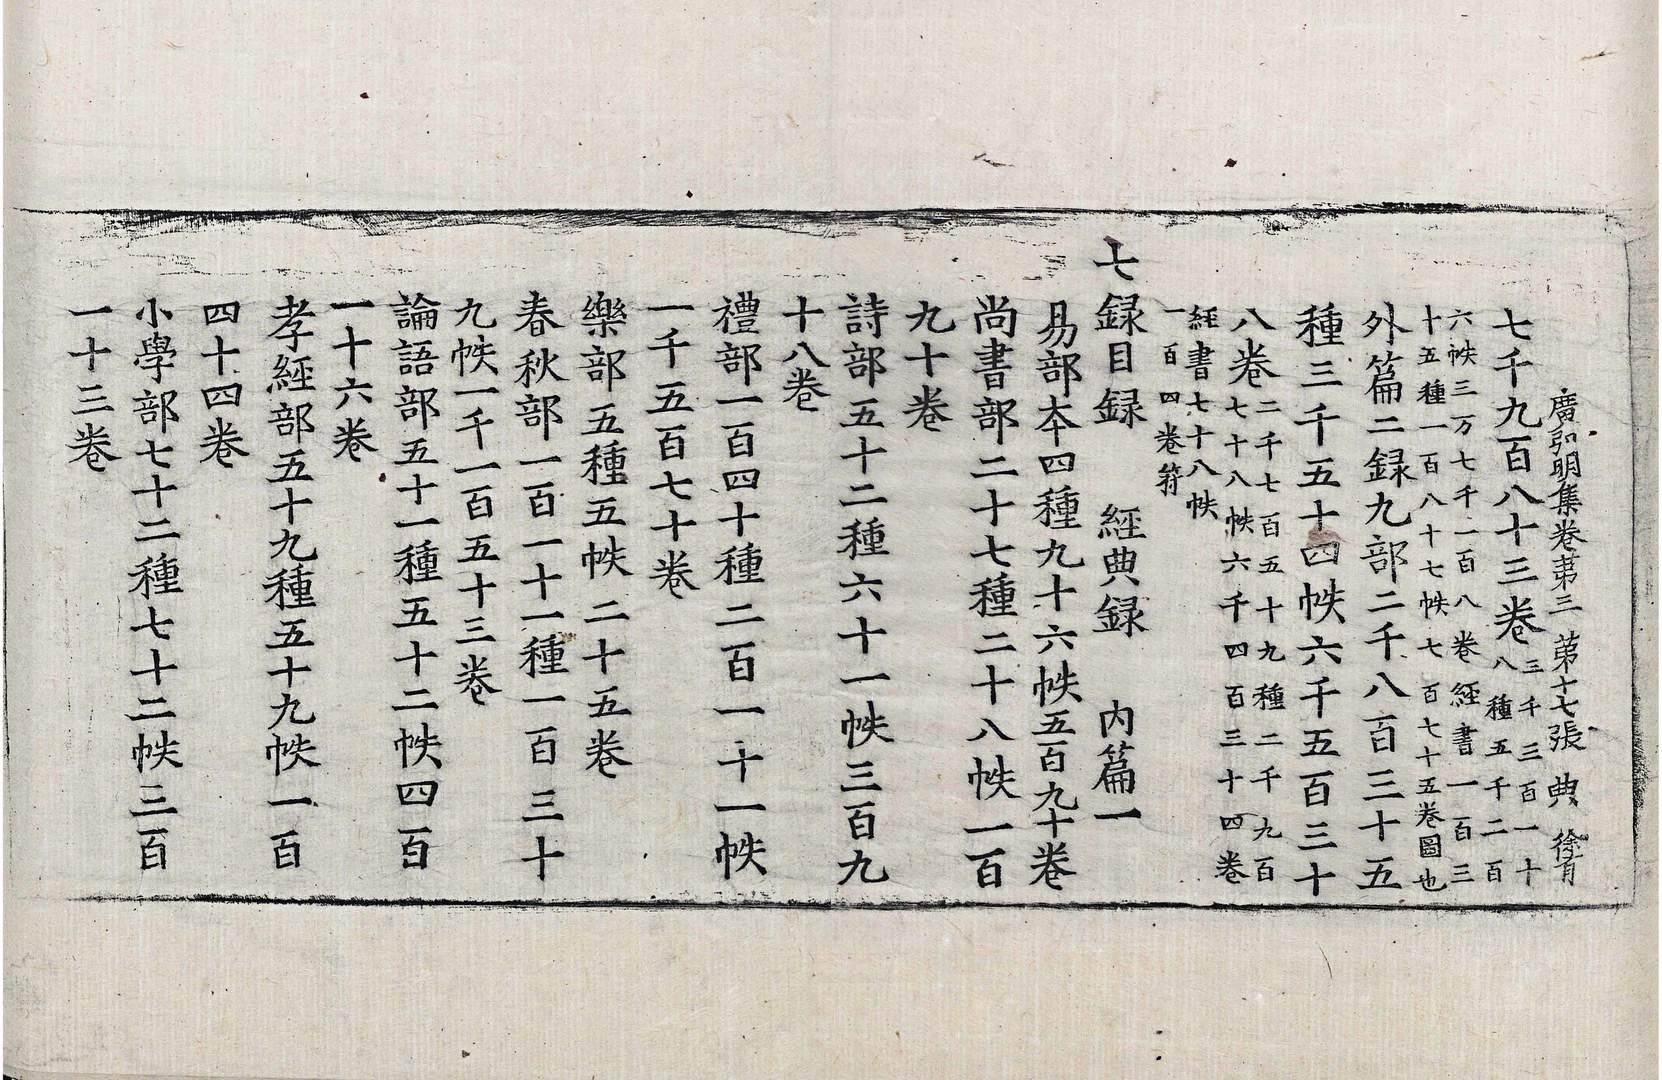 廣弘明集卷苐三 苐十七張 典 徐肯
七千九百八十三卷 三千三百一十
八種五千二百
六帙三万七千一百八卷經書一百三
十五種一百八十七帙七百七十五卷圖也
外篇二録九部二千八百三十五
種三千五十四帙六千五百三十
八卷 二千七百五十九種二千九百
七十八帙六千四百三十四卷
經書七十八帙
一百四卷符
七録目録 經典録 內篇一
易部本四種九十六帙五百九十卷
尚書部二十七種二十八帙一百
九十卷
詩部五十二種六十一帙三百九
十八卷
禮部一百四十種二百一十一帙
一千五百七十卷
樂部五種五帙二十五卷
春秋部一百一十一種一百三十
九帙一千一百五十三卷
論語部五十一種五十二帙四百
一十六卷
孝經部五十九種五十九帙一百
四十四卷
小學部七十二種七十二帙三百
一十三卷